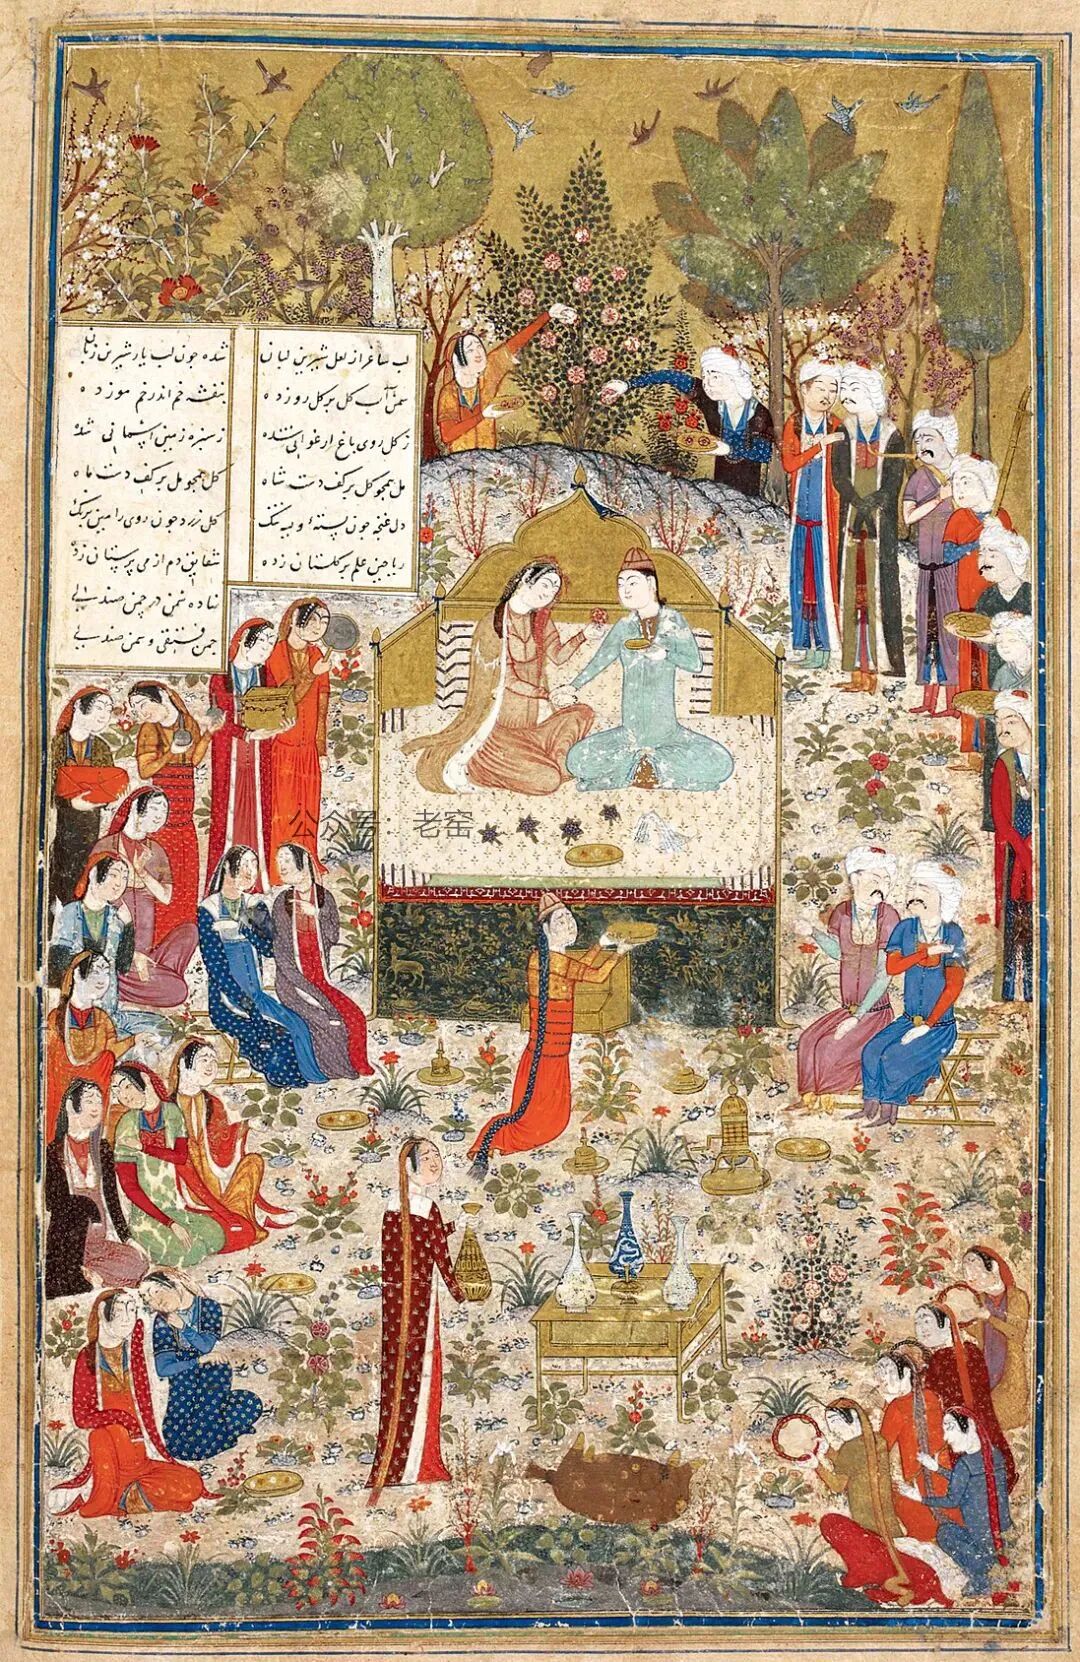 لب ساغر از لعل شیرین لبان
شده چون لب یار شیرین زبان
سمن آب گل بر گل رو زده
بنفشه خم اندر خم مو زده
ز گل روی باغ ارغوانی شده
ز سبزه زمین آسمانی شده
مل همچو گل بر کف دست شاه
گل همچو مل بر کف دست ماه
دل غنچه چون پسته تنگ
گل زرد چون روی رامین برنگ
ریاحین علم بر گلستان زده
شقایق دم از می پرستان زده
نهاده سمن در چمن صندلی
چمن فستقی و سمن صندلی
公众号：老窑